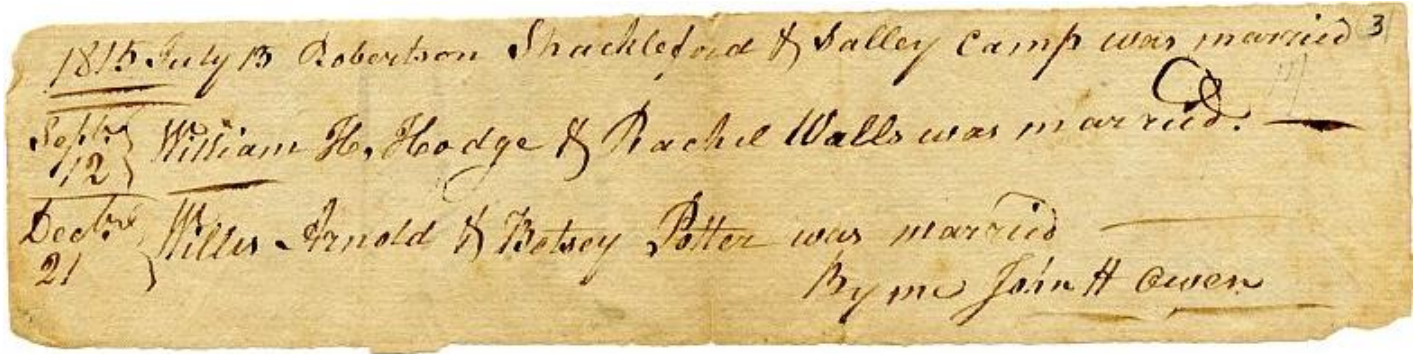 1815 July 13 Robertson Shackleford & Salley Camp was married 3
Septbr 12 William H. Hodge & Rachel Walls was married.
Decbr 21 Willis Arnold & Betsey Potter was married
By me John H Owen